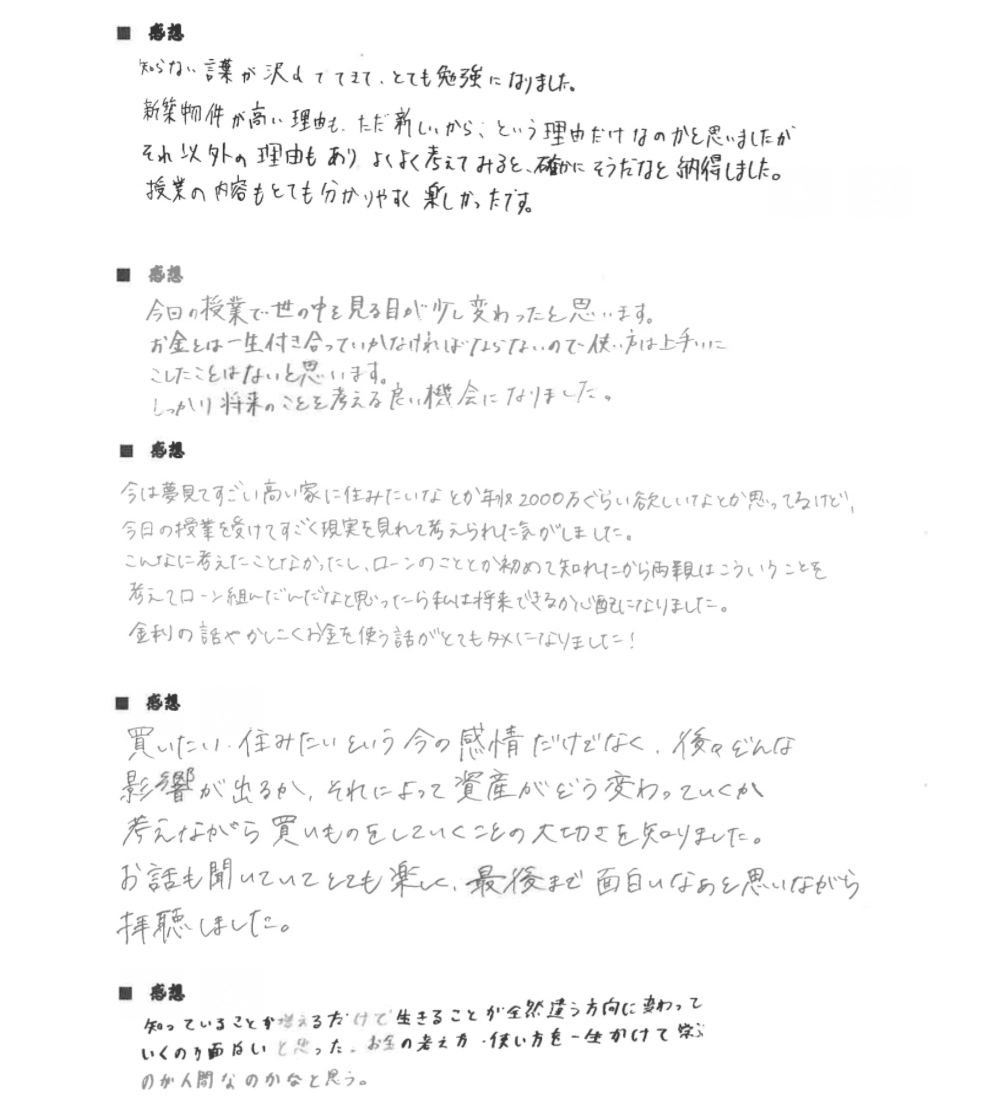 ■ 感想
知らない言葉が沢山でてきて、とても勉強になりました。
新築物件が高い理由も、ただ新しいから、という理由だけなのかと思いましたが
それ以外の理由もあり、よくよく考えてみると、確かにそうだなと納得しました。
授業の内容もとても分かりやすく楽しかったです。
■ 感想
今日の授業で世の中を見る目が少し変わったと思います。
お金とは一生付き合っていかなければならないので使い方は上手いに
こしたことはないと思います。
しっかり将来のことを考える良い機会になりました。
■ 感想
今は夢見てすごい高い家に住みたいなとか年収2000万ぐらい欲しいなとか思ってるけど、
今日の授業を受けてすごく現実を見れて考えられた気がしました。
こんなに考えたことなかったし、ローンのこととか初めて知れたから両親はこういうことを
考えてローン組んだんだなと思ったら私は将来できるか心配になりました。
金利の話やかしこくお金を使う話がとてもタメになりました！
■ 感想
買いたい、住みたいという今の感情だけでなく、後々どんな
影響が出るか、それによって資産がどう変わっていくか
考えながら買いものをしていくことの大切さを知りました。
お話も聞いていてとても楽しく、最後まで面白いなあと思いながら
拝聴しました。
■ 感想
知っていることが増えるだけで生きることが全然違う方向に変わって
いくのが面白いと思った。お金の考え方・使い方を一生かけて学ぶ
のが人間なのかなと思う。